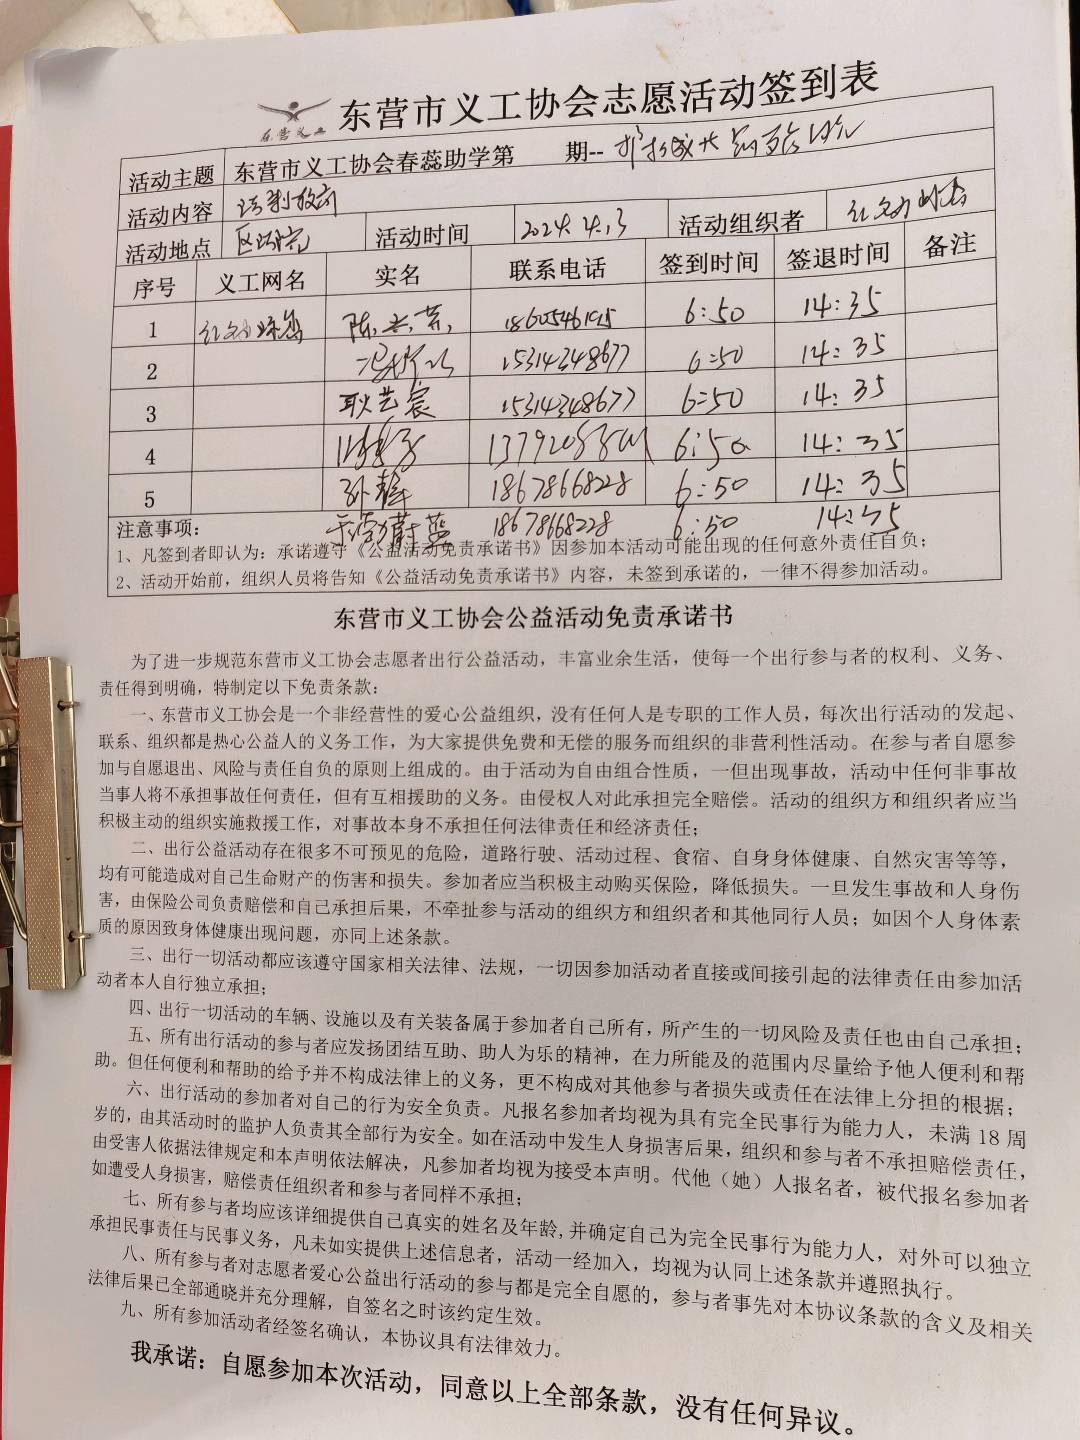 东营义工
东营市义工协会志愿活动签到表
活动主题 东营市义工协会春蕊助学第 期--
活动内容
活动地点 活动时间 2024.4.13 活动组织者
序号 义工网名 实名 联系电话 签到时间 签退时间 备注
1 6:50 14:35
2 15314348677 6:50 14:35
3 耿艺宸 15314348677 6:50 14:35
4 6:50 14:35
5 孙静 18678668228 6:50 14:35
蔚蓝 18678668228 6:50 14:35
注意事项:
1、凡签到者即认为:承诺遵守《公益活动免责承诺书》因参加本活动可能出现的任何意外责任自负;
2、活动开始前,组织人员将告知《公益活动免责承诺书》内容,未签到承诺的,一律不得参加活动。
东营市义工协会公益活动免责承诺书
为了进一步规范东营市义工协会志愿者出行公益活动,丰富业余生活,使每一个出行参与者的权利、义务、
责任得到明确,特制定以下免责条款:
一、东营市义工协会是一个非经营性的爱心公益组织,没有任何人是专职的工作人员,每次出行活动的发起、
联系、组织都是热心公益人的义务工作,为大家提供免费和无偿的服务而组织的非营利性活动。在参与者自愿参
加与自愿退出、风险与责任自负的原则上组成的。由于活动为自由组合性质,一但出现事故,活动中任何非事故
当事人将不承担事故任何责任,但有互相援助的义务。由侵权人对此承担完全赔偿。活动的组织方和组织者应当
积极主动的组织实施救援工作,对事故本身不承担任何法律责任和经济责任;
二、出行公益活动存在很多不可预见的危险,道路行驶、活动过程、食宿、自身身体健康、自然灾害等等,
均有可能造成对自己生命财产的伤害和损失。参加者应当积极主动购买保险,降低损失。一旦发生事故和人身伤
害,由保险公司负责赔偿和自己承担后果,不牵扯参与活动的组织方和组织者和其他同行人员;如因个人身体素
质的原因致身体健康出现问题,亦同上述条款。
三、出行一切活动都应该遵守国家相关法律、法规,一切因参加活动者直接或间接引起的法律责任由参加活
动者本人自行独立承担;
四、出行一切活动的车辆、设施以及有关装备属于参加者自己所有,所产生的一切风险及责任也由自己承担;
五、所有出行活动的参与者应发扬团结互助、助人为乐的精神,在力所能及的范围内尽量给予他人便利和帮
助。但任何便利和帮助的给予并不构成法律上的义务,更不构成对其他参与者损失或责任在法律上分担的根据;
六、出行活动的参加者对自己的行为安全负责。凡报名参加者均视为具有完全民事行为能力人,未满18周
岁的,由其活动时的监护人负责其全部行为安全。如在活动中发生人身损害后果,组织和参与者不承担赔偿责任,
由受害人依据法律规定和本声明依法解决,凡参加者均视为接受本声明。代他(她)人报名者,被代报名参加者
如遭受人身损害,赔偿责任组织者和参与者同样不承担;
七、所有参与者均应该详细提供自己真实的姓名及年龄,并确定自己为完全民事行为能力人,对外可以独立
承担民事责任与民事义务,凡未如实提供上述信息者,活动一经加入,均视为认同上述条款并遵照执行。
八、所有参与者对志愿者爱心公益出行活动的参与都是完全自愿的,参与者事先对本协议条款的含义及相关
法律后果已全部通晓并充分理解,自签名之时该约定生效。
九、所有参加活动者经签名确认,本协议具有法律效力。
我承诺:自愿参加本次活动,同意以上全部条款,没有任何异议。